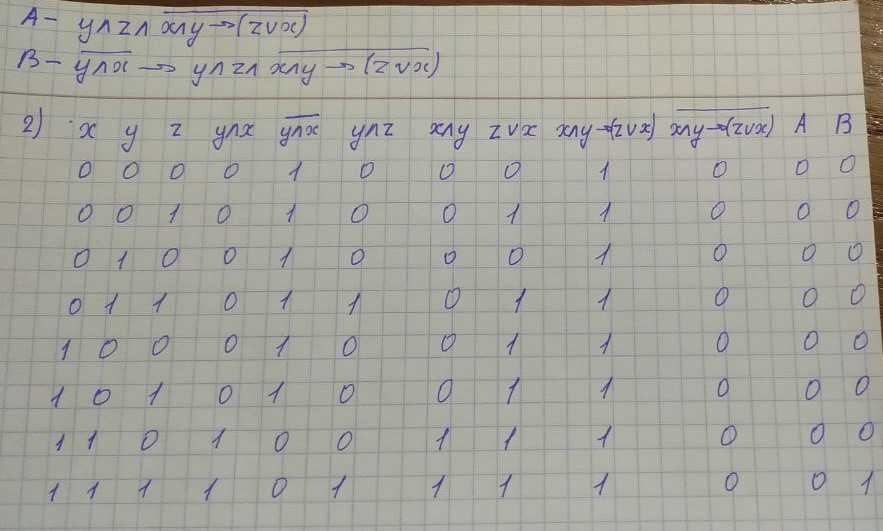 A – y∧z∧ x̅∧̅y̅→̅(̅z̅∨̅x̅)̅
B – y̅∧̅x̅ → y∧z∧ x̅∧̅y̅→̅(̅z̅∨̅x̅)̅
2) x y z y∧x y̅∧̅x̅ y∧z x∧y z∨x x∧y→(z∨x) x̅∧̅y̅→̅(̅z̅∨̅x̅)̅ A B
0 0 0 0 1 0 0 0 1 0 0 0
0 0 1 0 1 0 0 1 1 0 0 0
0 1 0 0 1 0 0 0 1 0 0 0
0 1 1 0 1 1 0 1 1 0 0 0
1 0 0 0 1 0 0 1 1 0 0 0
1 0 1 0 1 0 0 1 1 0 0 0
1 1 0 1 0 0 1 1 1 0 0 0
1 1 1 1 0 1 1 1 1 0 0 1